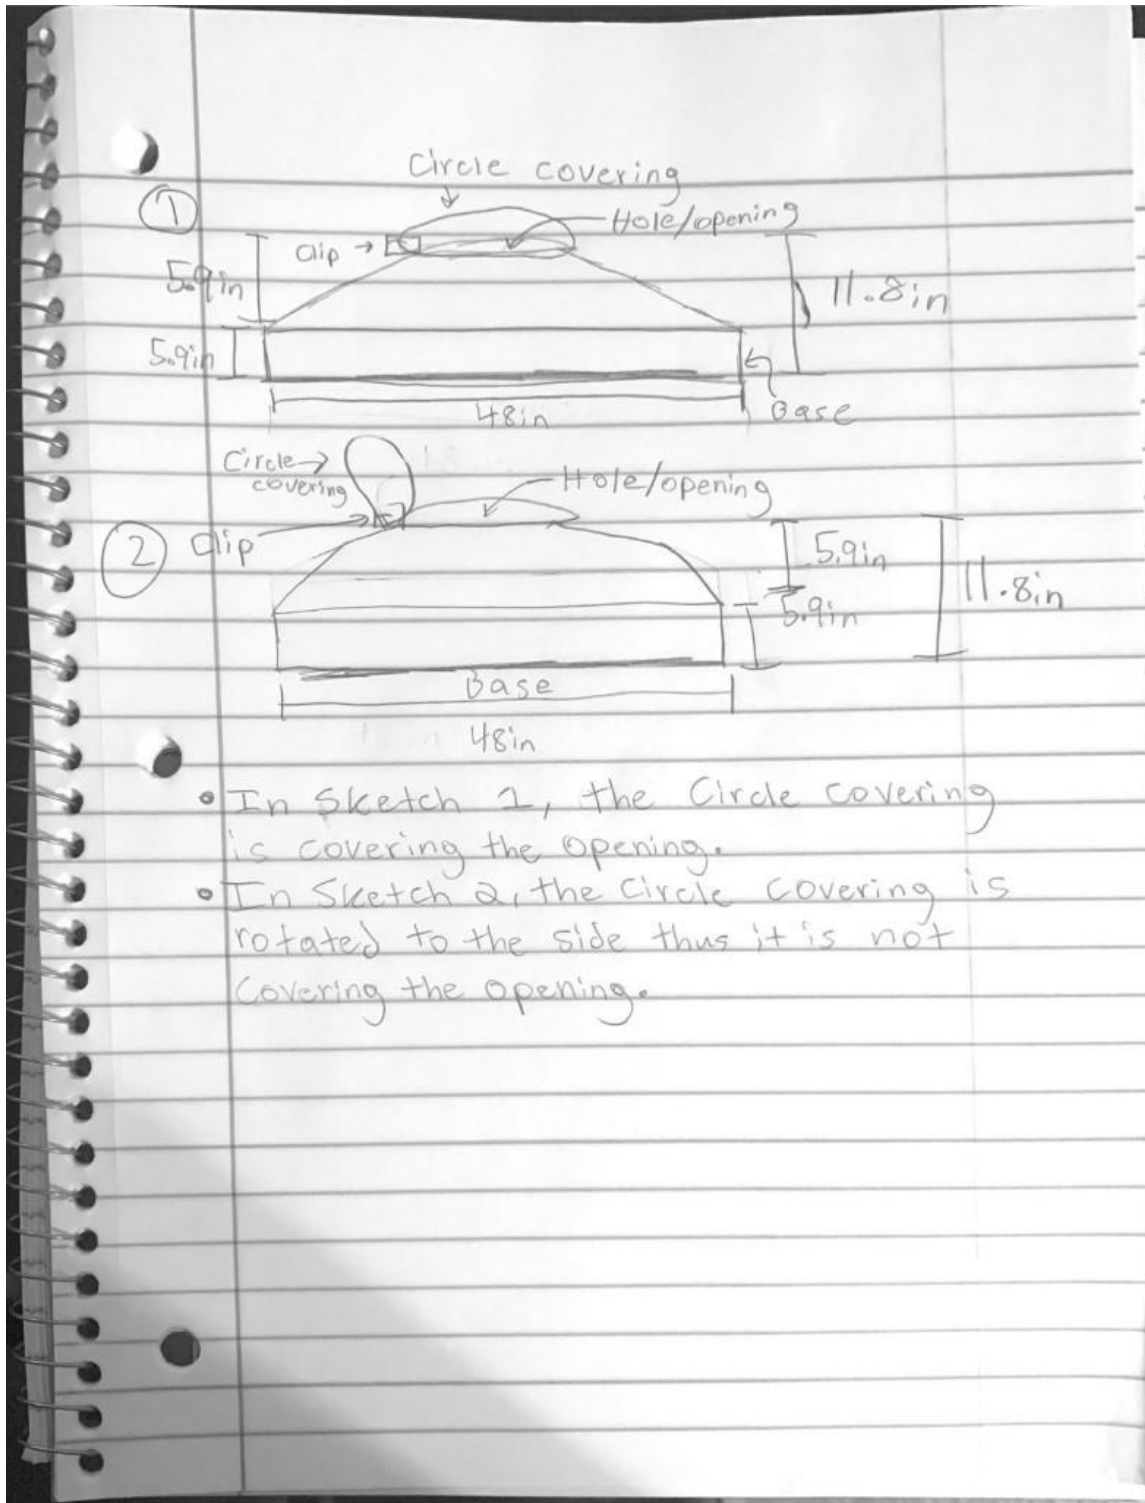 Circle covering
1
Hole/opening
Clip
5.9in
11.8in
5.9in
Base
48in
Circle
covering
Hole/opening
2
Clip
5.9in
11.8in
5.9in
Base
48in
• In Sketch 1, the Circle covering
is covering the opening.
• In Sketch 2, the Circle covering is
rotated to the side thus it is not
Covering the opening.